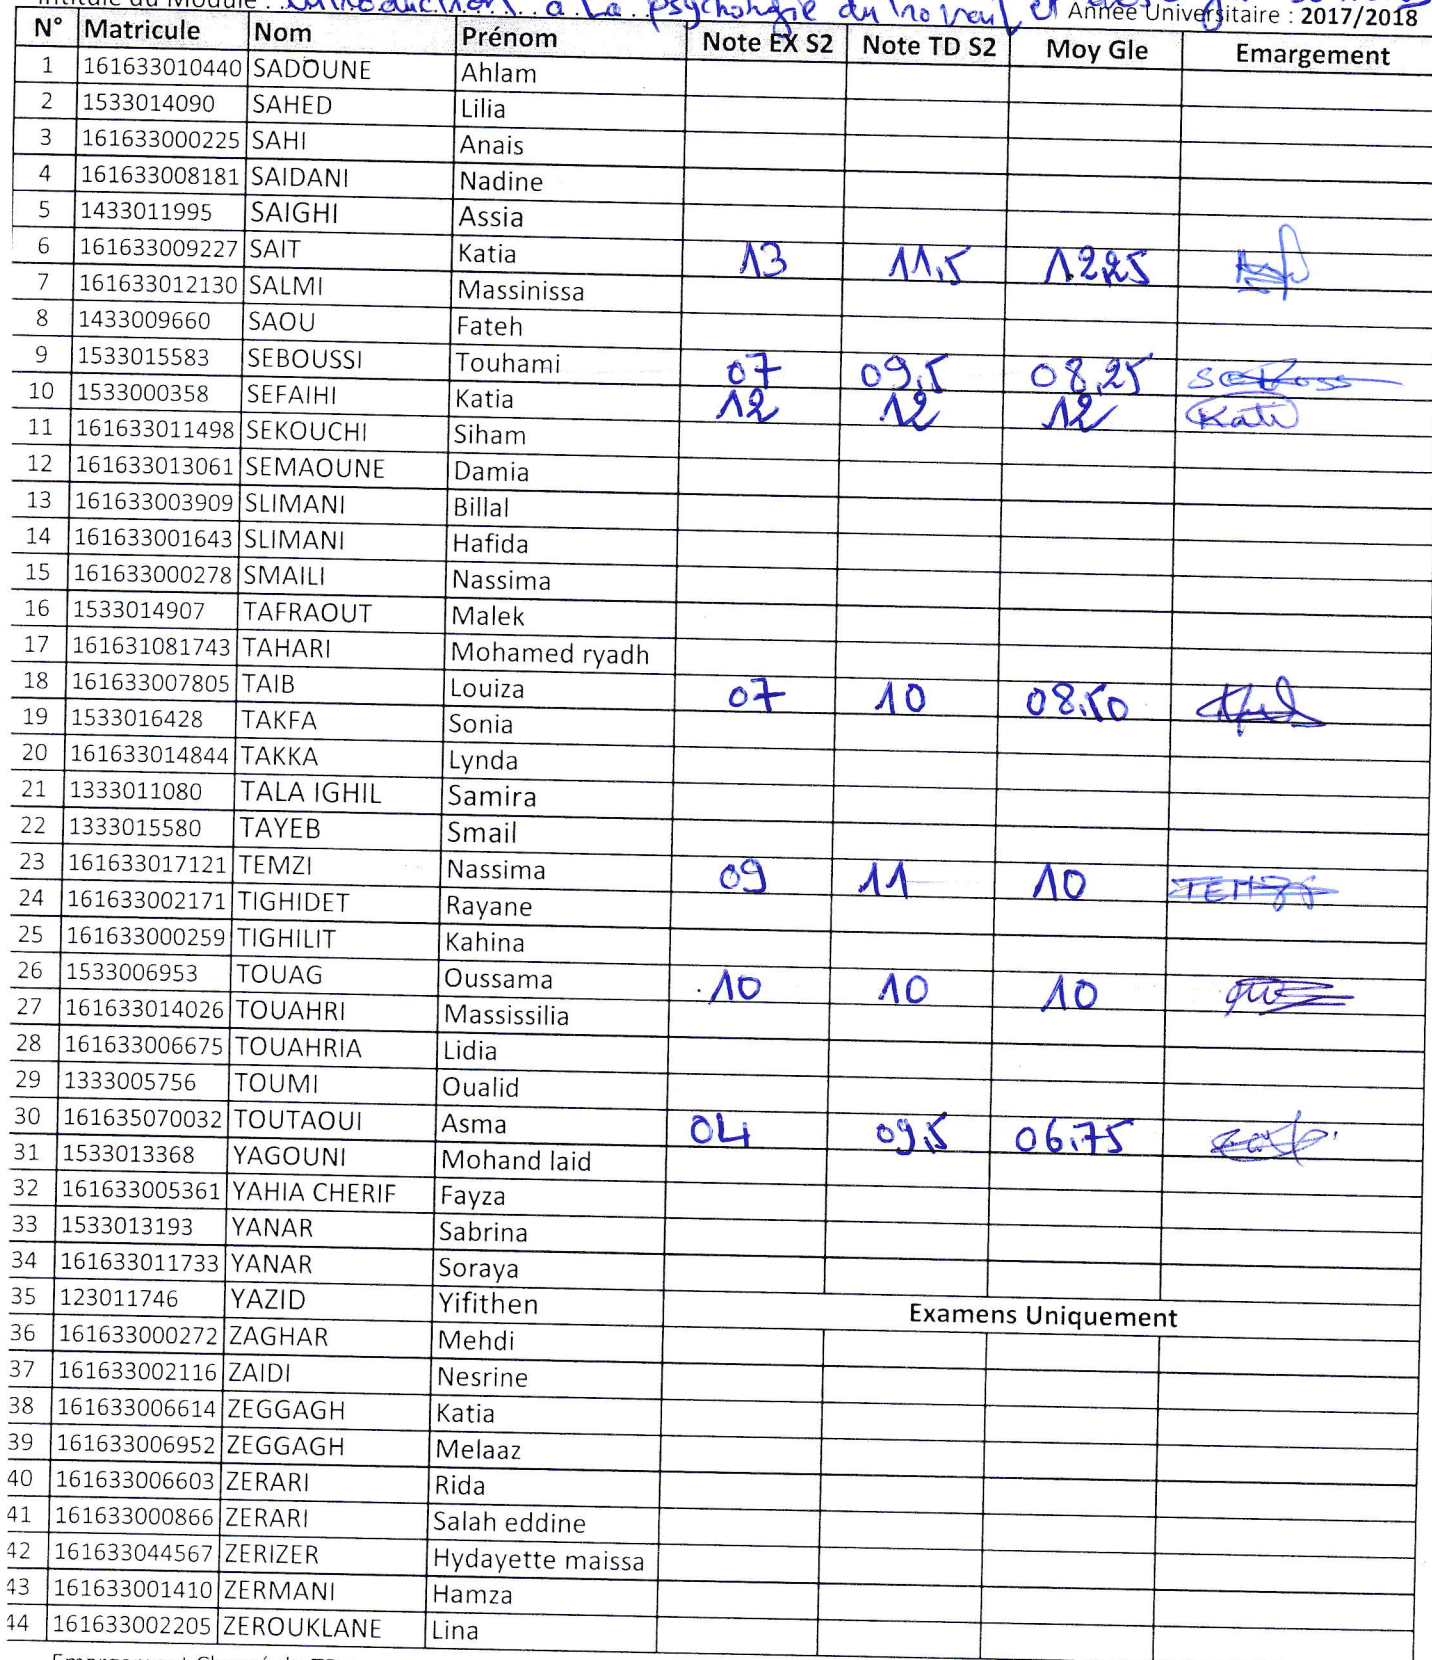 Intitulé du Module : Introduction à la psychologie du travail et Année Universitaire : 2017/2018
N° Matricule Nom Prénom Note EX S2 Note TD S2 Moy Gle Emargement
1 161633010440 SADOUNE Ahlam
2 1533014090 SAHED Lilia
3 161633000225 SAHI Anais
4 161633008181 SAIDANI Nadine
5 1433011995 SAIGHI Assia
6 161633009227 SAIT Katia 13 11,5 12,25
7 161633012130 SALMI Massinissa
8 1433009660 SAOU Fateh
9 1533015583 SEBOUSSI Touhami 07 09,5 08,25
10 1533000358 SEFAIHI Katia 12 12 12 Kati
11 161633011498 SEKOUCHI Siham
12 161633013061 SEMAOUNE Damia
13 161633003909 SLIMANI Billal
14 161633001643 SLIMANI Hafida
15 161633000278 SMAILI Nassima
16 1533014907 TAFRAOUT Malek
17 161631081743 TAHARI Mohamed ryadh
18 161633007805 TAIB Louiza 07 10 08,50
19 1533016428 TAKFA Sonia
20 161633014844 TAKKA Lynda
21 1333011080 TALA IGHIL Samira
22 1333015580 TAYEB Smail
23 161633017121 TEMZI Nassima 09 11 10
24 161633002171 TIGHIDET Rayane
25 161633000259 TIGHILIT Kahina
26 1533006953 TOUAG Oussama 10 10 10
27 161633014026 TOUAHRI Massissilia
28 161633006675 TOUAHRIA Lidia
29 1333005756 TOUMI Oualid
30 161635070032 TOUTAOUI Asma 04 09,5 06,75
31 1533013368 YAGOUNI Mohand laid
32 161633005361 YAHIA CHERIF Fayza
33 1533013193 YANAR Sabrina
34 161633011733 YANAR Soraya
35 123011746 YAZID Yifithen Examens Uniquement
36 161633000272 ZAGHAR Mehdi
37 161633002116 ZAIDI Nesrine
38 161633006614 ZEGGAGH Katia
39 161633006952 ZEGGAGH Melaaz
40 161633006603 ZERARI Rida
41 161633000866 ZERARI Salah eddine
42 161633044567 ZERIZER Hydayette maissa
43 161633001410 ZERMANI Hamza
44 161633002205 ZEROUKLANE Lina